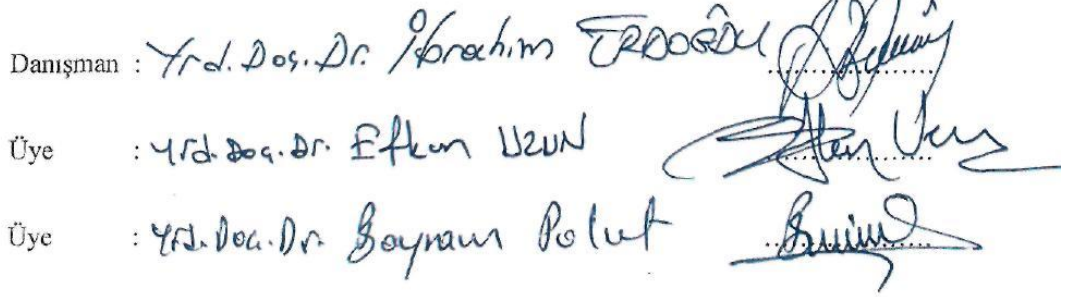 Danışman : Yrd. Doç. Dr. İbrahim ERDOĞDU
Üye : Yrd. Doç. Dr. Efkan UZUN
Üye : Yrd. Doç. Dr. Bayram Polat